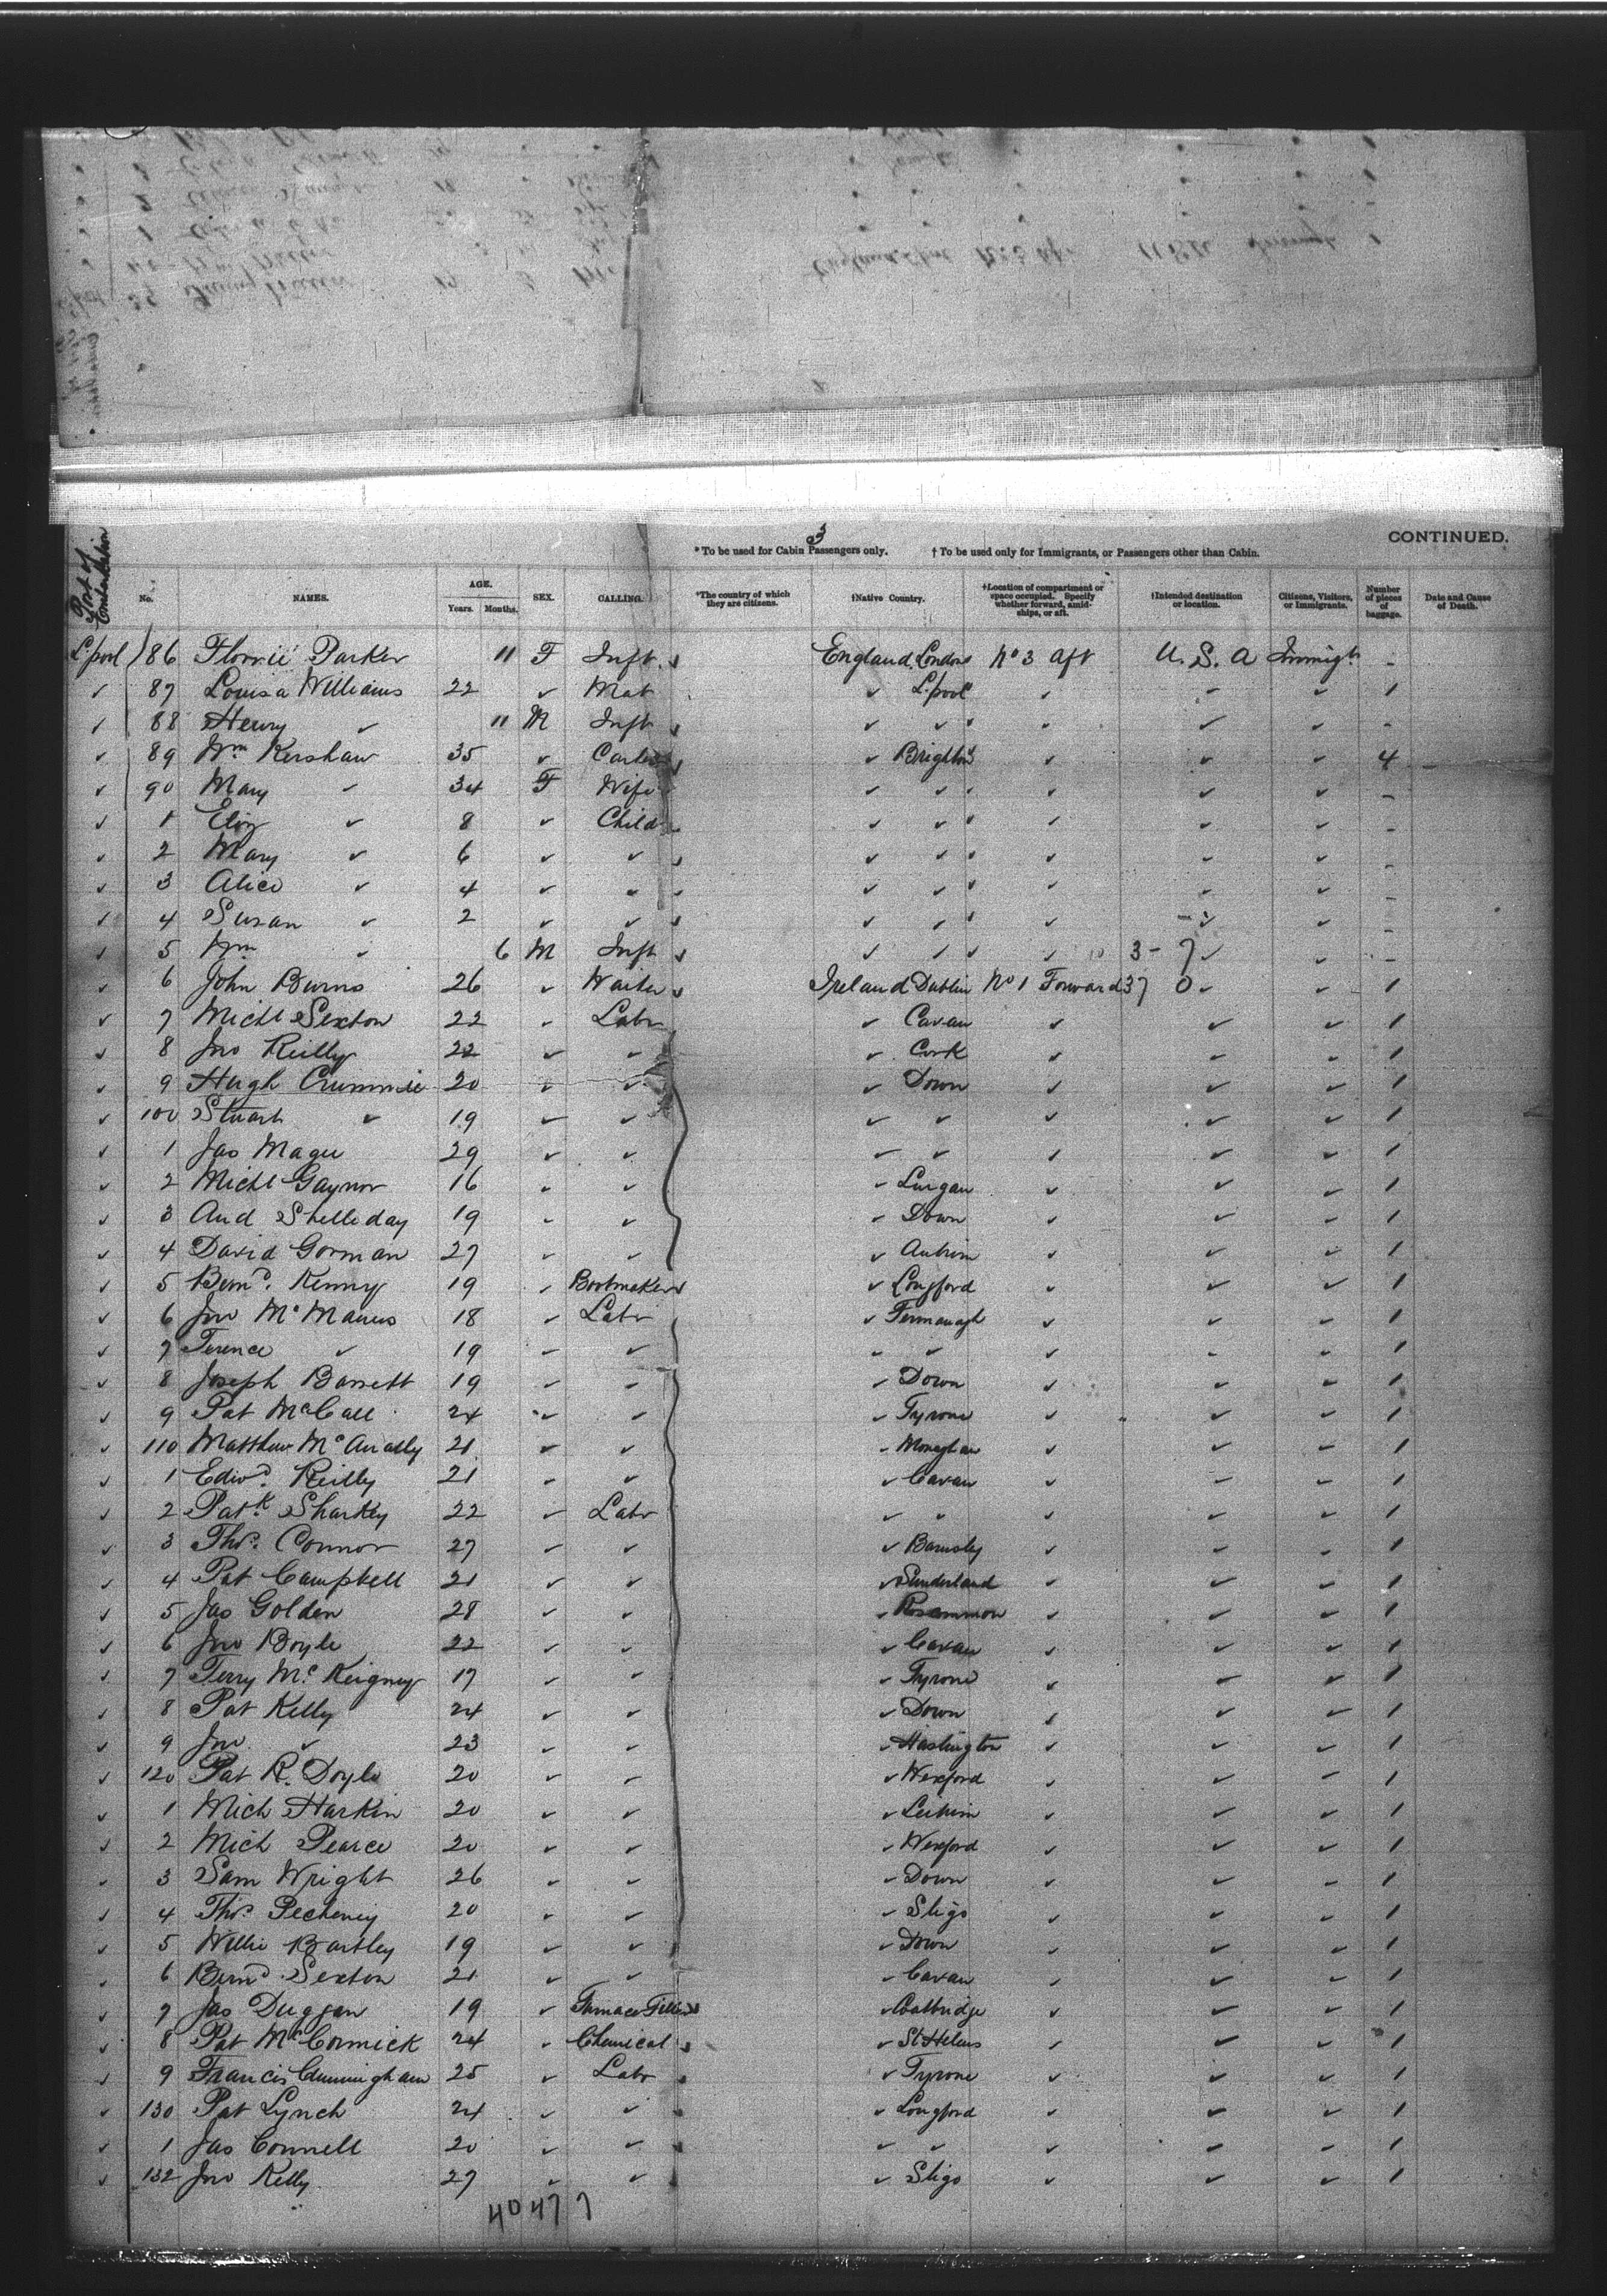 3
CONTINUED.
*To be used for Cabin Passengers only. †To be used only for Immigrants, or Passengers other than Cabin.
Port of Embarkation No. NAMES. AGE. Years. Months. SEX. CALLING. *The country of which they are citizens. †Native Country. †Location of compartment or space occupied. Specify whether forward, amidships, or aft. †Intended destination or location. Citizens, Visitors, or Immigrants. Number of pieces of baggage. Date and Cause of Death.
L.pool 86 Florrie Parker 11 F Inft England London No 3 aft U.S.A Immigt -
✓ 87 Louisa Williams 22 ✓ Mat ✓ L.pool ✓ ✓ ✓ 1
✓ 88 Henry ✓ 11 M Inft ✓ ✓ ✓ ✓ ✓ -
✓ 89 Wm Kershaw 35 ✓ Carter ✓ Brighton ✓ ✓ ✓ 4
✓ 90 Mary ✓ 34 F Wife ✓ ✓ ✓ ✓ ✓ -
✓ 1 Eliz ✓ 8 ✓ Child ✓ ✓ ✓ ✓ ✓ -
✓ 2 Mary ✓ 6 ✓ ✓ ✓ ✓ ✓ ✓ ✓ -
✓ 3 Alice ✓ 4 ✓ ✓ ✓ ✓ ✓ ✓ ✓ -
✓ 4 Susan ✓ 2 ✓ ✓ ✓ ✓ ✓ ✓ ✓ -
✓ 5 Wm ✓ 6 M Inft ✓ ✓ ✓ 3 - 7 ✓ ✓ -
✓ 6 John Burns 26 ✓ Waiter Ireland Dublin No 1 Forward 37 0 ✓ ✓ 1
✓ 7 Michl Sexton 22 ✓ Labr ✓ Cavan ✓ ✓ ✓ 1
✓ 8 Jno Reilly 22 ✓ ✓ ✓ Cork ✓ ✓ ✓ 1
✓ 9 Hugh Crummie 20 ✓ ✓ ✓ Down ✓ ✓ ✓ 1
✓ 100 Stuart ✓ 19 ✓ ✓ ✓ ✓ ✓ ✓ ✓ 1
✓ 1 Jas Magee 29 ✓ ✓ ✓ ✓ ✓ ✓ ✓ 1
✓ 2 Michl Gaynor 16 ✓ ✓ ✓ Lurgan ✓ ✓ ✓ 1
✓ 3 And Shelliday 19 ✓ ✓ ✓ Down ✓ ✓ ✓ 1
✓ 4 David Gorman 27 ✓ ✓ ✓ Antrim ✓ ✓ ✓ 1
✓ 5 Bernd. Kenny 19 ✓ Bootmaker ✓ Longford ✓ ✓ ✓ 1
✓ 6 Jno McManus 18 ✓ Labr ✓ Fermanagh ✓ ✓ ✓ 1
✓ 7 Terence ✓ 19 ✓ ✓ ✓ ✓ ✓ ✓ ✓ 1
✓ 8 Joseph Barrett 19 ✓ ✓ ✓ Down ✓ ✓ ✓ 1
✓ 9 Pat McCall 24 ✓ ✓ ✓ Tyrone ✓ ✓ ✓ 1
✓ 110 Matthew McAnally 21 ✓ ✓ ✓ Monaghan ✓ ✓ ✓ 1
✓ 1 Edwd. Reilly 21 ✓ ✓ ✓ Cavan ✓ ✓ ✓ 1
✓ 2 Patk Sharkey 22 ✓ Labr ✓ ✓ ✓ ✓ ✓ 1
✓ 3 Thos. Connor 27 ✓ ✓ ✓ Barnsley ✓ ✓ ✓ 1
✓ 4 Pat Campbell 21 ✓ ✓ ✓ Sunderland ✓ ✓ ✓ 1
✓ 5 Jas Golden 28 ✓ ✓ ✓ Roscommon ✓ ✓ ✓ 1
✓ 6 Jno Boyle 22 ✓ ✓ ✓ Cavan ✓ ✓ ✓ 1
✓ 7 Terry Mc Keigney 17 ✓ ✓ ✓ Tyrone ✓ ✓ ✓ 1
✓ 8 Pat Kelly 24 ✓ ✓ ✓ Down ✓ ✓ ✓ 1
✓ 9 Jno ✓ 23 ✓ ✓ ✓ Haslington ✓ ✓ ✓ 1
✓ 120 Pat R. Doyle 20 ✓ ✓ ✓ Wexford ✓ ✓ ✓ 1
✓ 1 Mich Harkin 20 ✓ ✓ ✓ Leitrim ✓ ✓ ✓ 1
✓ 2 Mich Pearce 20 ✓ ✓ ✓ Wexford ✓ ✓ ✓ 1
✓ 3 Sam Wright 26 ✓ ✓ ✓ Down ✓ ✓ ✓ 1
✓ 4 Thos. Pecheney 20 ✓ ✓ ✓ Sligo ✓ ✓ ✓ 1
✓ 5 Willie Bartley 19 ✓ ✓ ✓ Down ✓ ✓ ✓ 1
✓ 6 Bernd. Sexton 21 ✓ ✓ ✓ Cavan ✓ ✓ ✓ 1
✓ 7 Jas Duggan 19 ✓ Furnace Filler ✓ Coatbridge ✓ ✓ ✓ 1
✓ 8 Pat McCormick 24 ✓ Chemical ✓ St Helens ✓ ✓ ✓ 1
✓ 9 Francis Cunningham 25 ✓ Labr ✓ Tyrone ✓ ✓ ✓ 1
✓ 130 Pat Lynch 24 ✓ ✓ ✓ Longford ✓ ✓ ✓ 1
✓ 1 Jas Connell 20 ✓ ✓ ✓ ✓ ✓ ✓ ✓ 1
✓ 132 Jno Kelly 27 ✓ ✓ ✓ Sligo ✓ ✓ ✓ 1
40 47 7